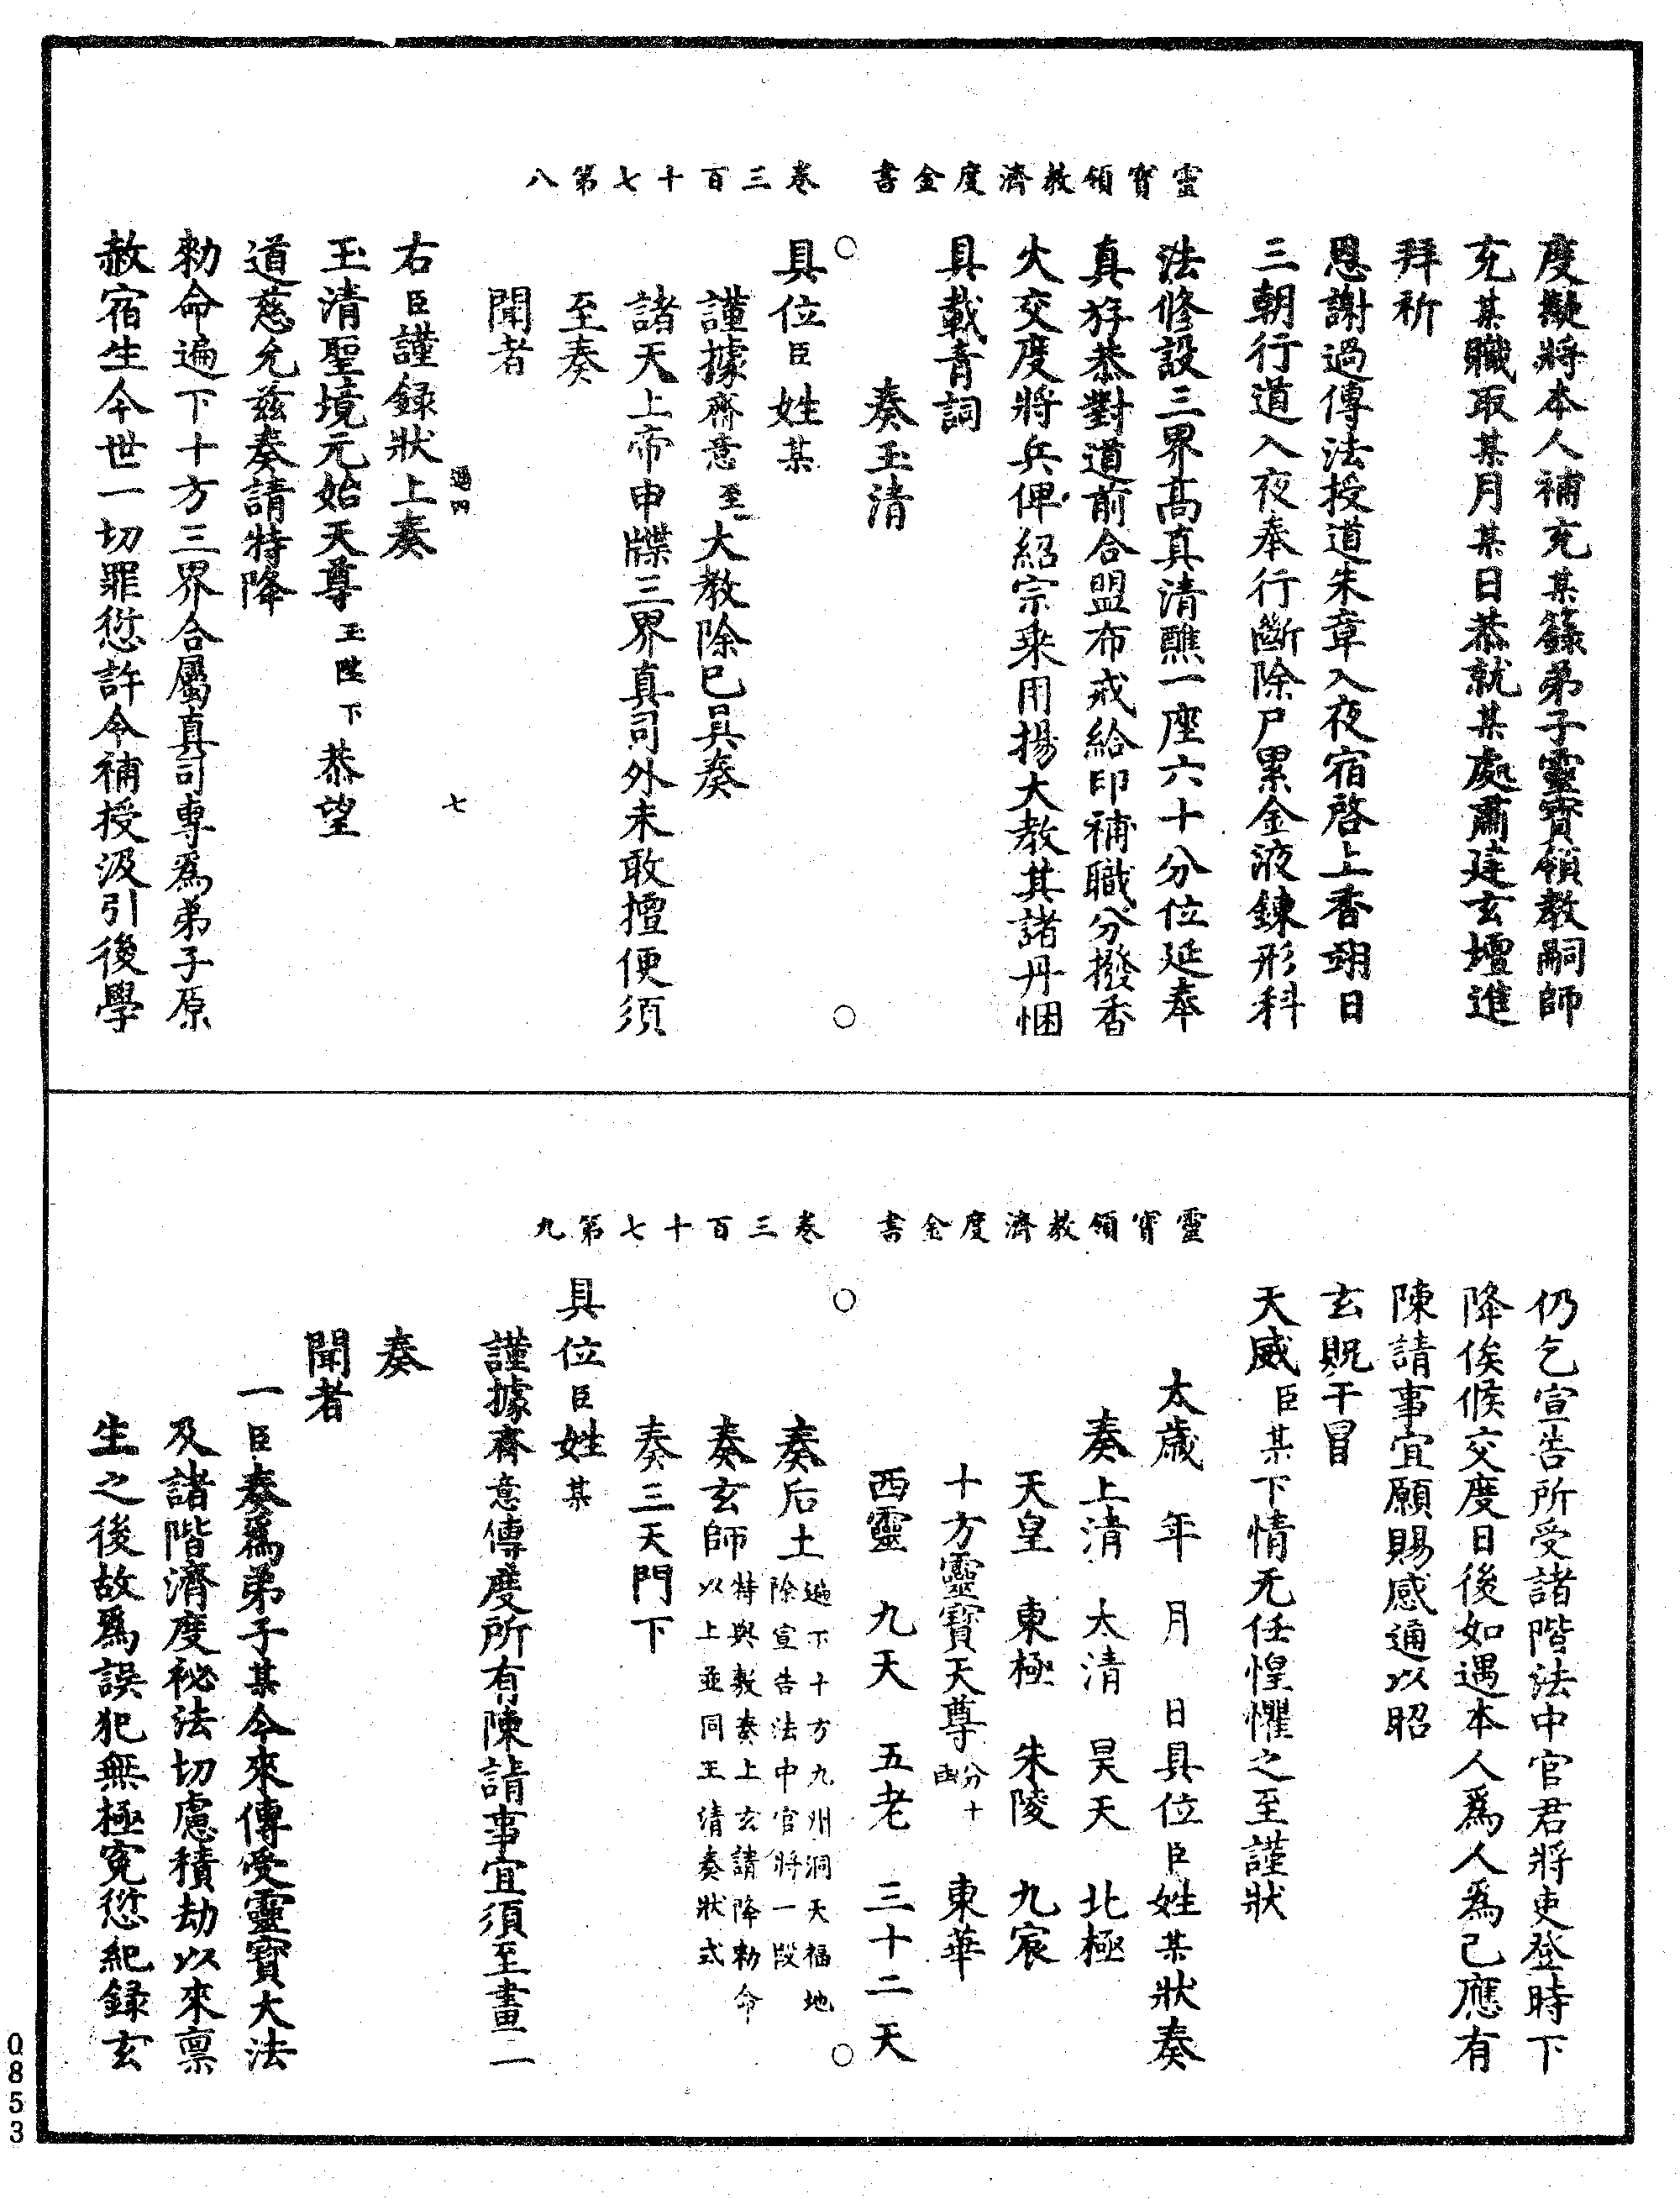 靈寶領教濟度金書 卷三百十七第八
度擬將本人補充某籙弟子靈寶領教嗣師
充某職取某月某日恭就某處肅建玄壇進
拜祈
恩謝過傳法授道朱章入夜宿啓上香翊日
三朝行道入夜奉行斷除尸累金液鍊形科
法修設三界高真清醮一座六十分位延奉
真游恭對道前合盟布戒給印補職分撥香
火交度將兵俾紹宗乘用揚大教其諸丹悃
具載青詞
○ ○
奏玉清
具位臣姓某
謹據齋意至大教除已具奏
諸天上帝申牒三界真司外未敢擅便須
至奏
聞者
通四 七
右臣謹錄狀上奏
玉清聖境元始天尊玉陛下恭望
道慈允兹奏請特降
勑命遍下十方三界合屬真司專爲弟子原
赦宿生今世一切罪愆許令補授汲引後學
靈寶領教濟度金書 卷三百十七第九
仍乞宣告所受諸階法中官君將吏登時下
降俟候交度日後如遇本人爲人爲己應有
陳請事宜願賜感通以昭
玄貺干冒
天威臣某下情无任惶懼之至謹狀
太歲 年 月 日具位臣姓某狀奏
奏上清 太清 昊天 北極
天皇 東極 朱陵 九宸
十方靈寶天尊分十函 東華
西靈 九天 五老 三十二天
○ ○
奏后土遍下十方九州洞天福地除宣告法中官將一段
奏玄師特與敷奏上玄請降勑命以上並同玉清奏狀式
奏三天門下
具位臣姓某
謹據齋意傳度所有陳請事宜須至畫一
奏
聞者
一臣奏爲弟子某今來傳受靈寶大法
及諸階濟度祕法切慮積劫以來禀
生之後故爲誤犯無極寃愆紀錄玄
0853